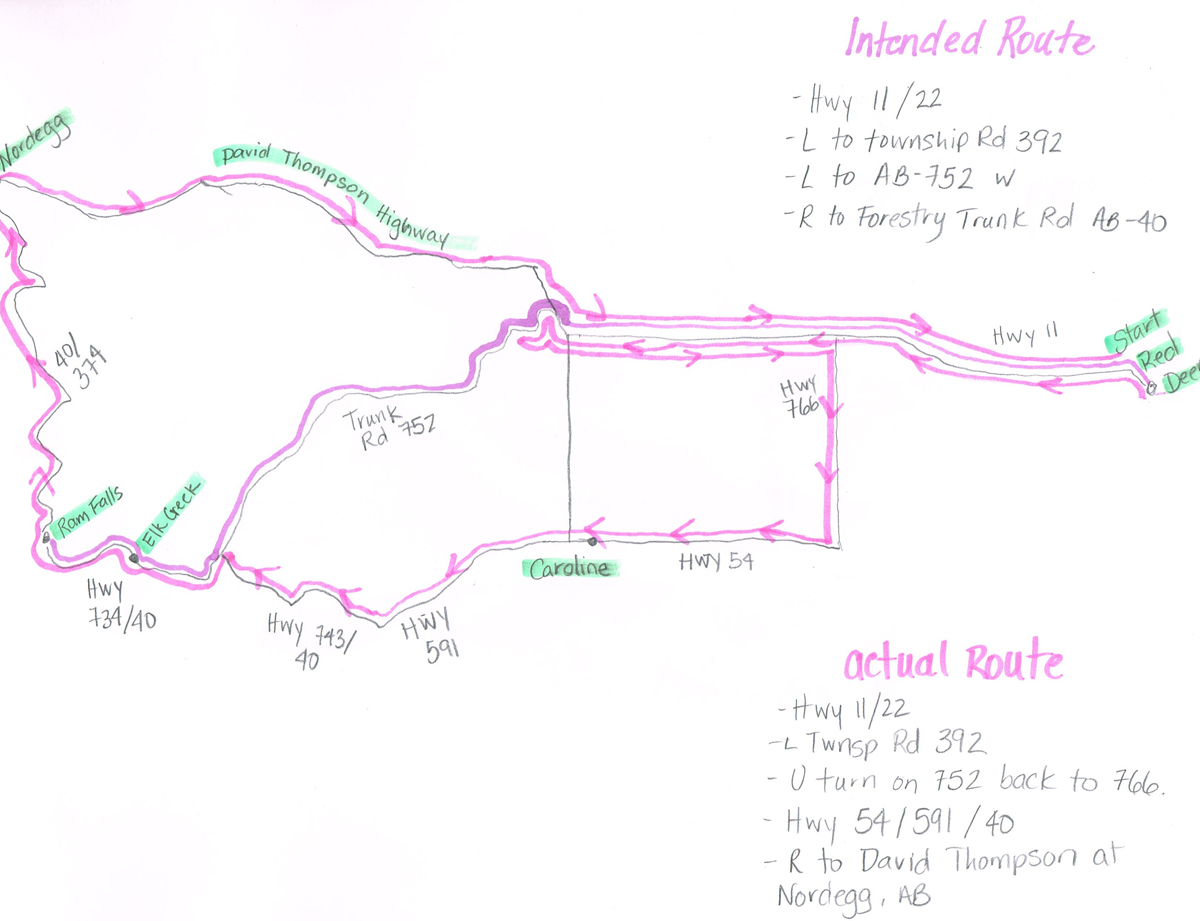 Intended Route
- Hwy 11/22
- L to township Rd 392
- L to AB-752 W
- R to Forestry Trunk Rd AB-40
Nordegg
David Thompson Highway
Hwy 11
Start
Red
Deer
40/
374
Hwy
766
Trunk
Rd 752
Ram Falls
Elk Creek
Caroline
Hwy 54
Hwy
734/40
Hwy 743/
40
HWY
591
actual Route
- Hwy 11/22
- L Twnsp Rd 392
- U turn on 752 back to 766.
- Hwy 54/591/40
- R to David Thompson at
Nordegg, AB